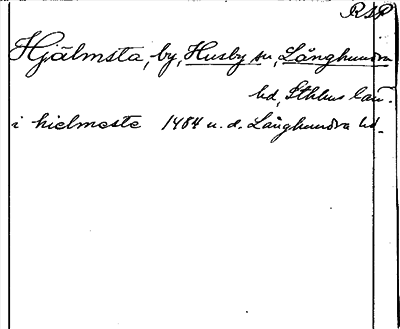 RSP
Hjälmsta, by, Husby sn, Långhundra
hd, Sthlms län.
i hielmeste 1484 u. d. Långhundra hd.